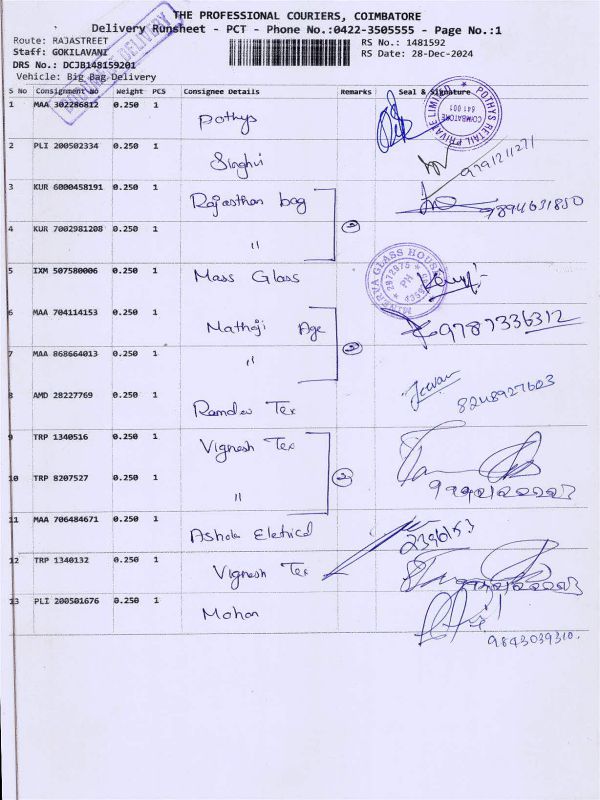 THE PROFESSIONAL COURIERS, COIMBATORE
Delivery Runsheet - PCT - Phone No.:0422-3505555 - Page No.:1
Route: RAJASTREET
RS No.: 1481592
Staff: GOKILAVANI
RS Date: 28-Dec-2024
DRS No.: DCJB148159201
Vehicle: Big Bag Delivery
DELIVERY
S No Consignment No Weight PCS Consignee Details Remarks Seal & Signature
1 MAA 302286812 0.250 1 Pothys
POTHYS RETAIL PRIVATE LIMITED
COIMBATORE
641 001
2 PLI 200502334 0.250 1 Singhvi 9791211271
3 KUR 6000458191 0.250 1 Rajasthan bag 9894631850
4 KUR 7002981208 0.250 1 " ②
5 IXM 507580006 0.250 1 Mass Glass
GLASS HOUSE
PH
2972975
6 MAA 704114153 0.250 1 Mathaji Age 9787336312
7 MAA 868664013 0.250 1 " ②
8 AMD 28227769 0.250 1 Ramdev Tex Jeevan 8248927603
9 TRP 1340516 0.250 1 Vignesh Tex
10 TRP 8207527 0.250 1 " ②
11 MAA 706484671 0.250 1 Ashok Eletrical 2396153
12 TRP 1340132 0.250 1 Vignesh Tex
13 PLI 200501676 0.250 1 Mohan 9843039310.